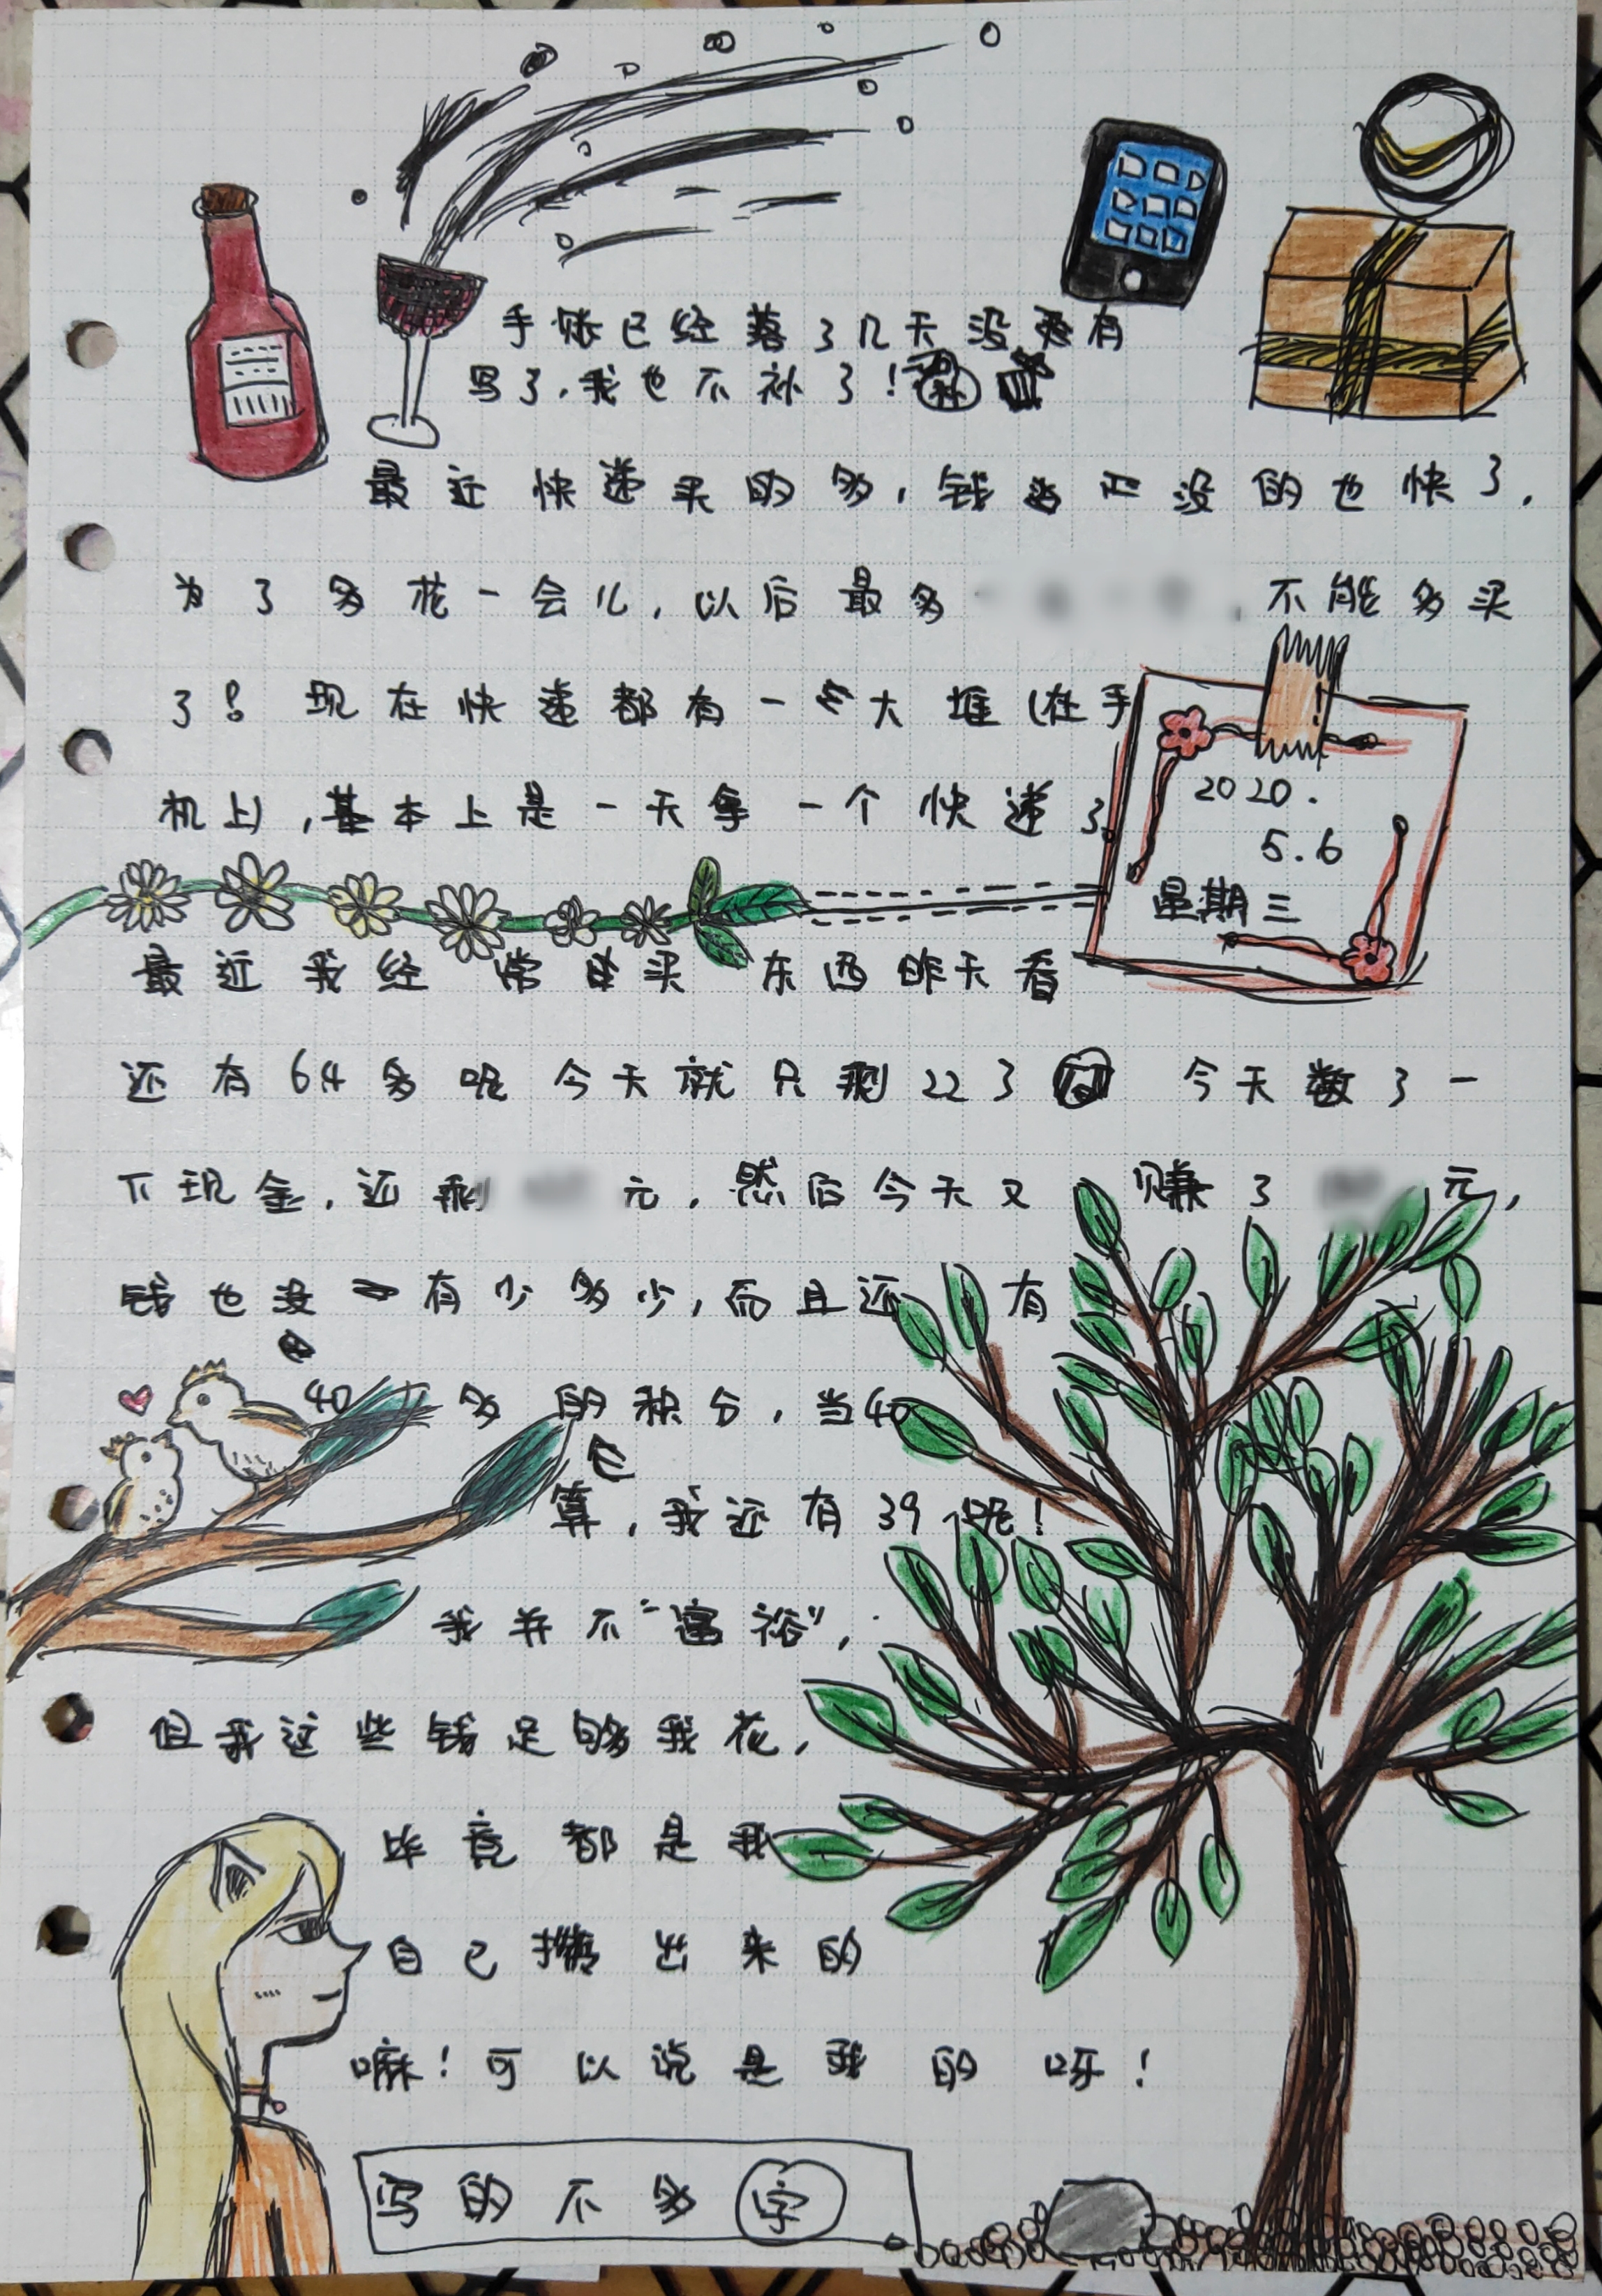 手账已经落了几天没有
写了,我也不补了!
最近快递买的多,钱 没的也快了,
为了多花一会儿,以后最多 ,不能多买
了!现在快递都有一大堆(在手
机上),基本上是一天拿一个快递了
2020.
5.6
星期三
最近我经常买东西昨天看
还有64多呢今天就只剩22了 今天数了一
下现金,还剩 元,然后今天又赚了 元,
钱也没有少多少,而且还有
40多的积分,当40
算,我还有39呢!
我并不“富裕”,
但我这些钱足够我花,
毕竟都是我
自己攒出来的
嘛!可以说是我的呀!
写的不多字